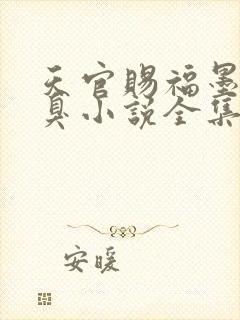 天官赐福墨
真小说全集
安暖